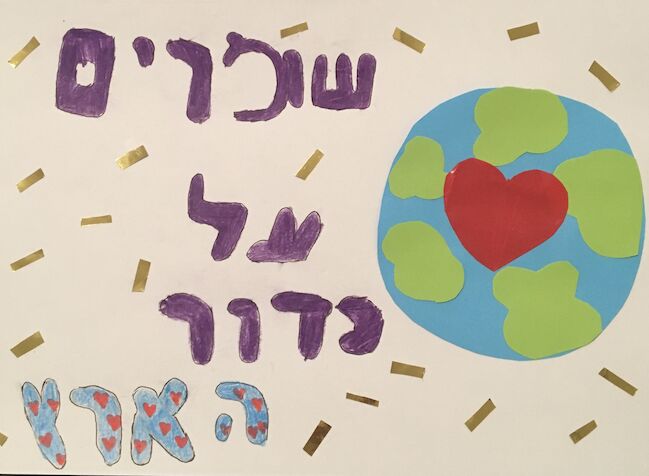 שומרים
על
כדור
הארץ